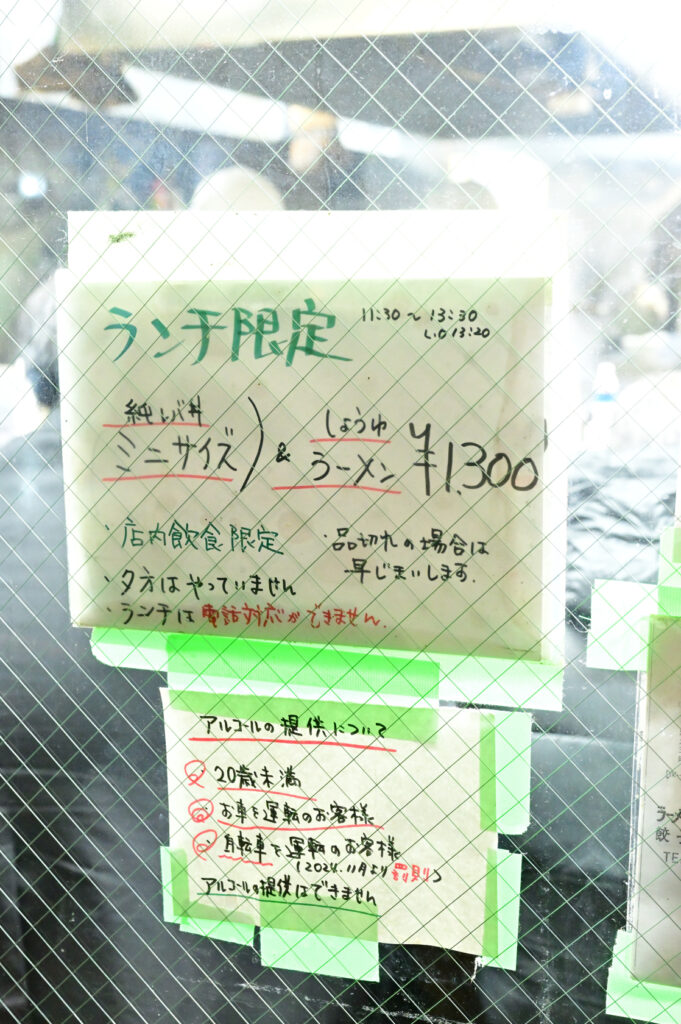 ランチ限定
11:30〜13:30
L.O 13:20
純レバ丼
ミニサイズ)
&
しょうゆ
ラーメン
¥1,300
・店内飲食限定
・品切れの場合は
早じまいします.
・夕方はやっていません
・ランチは電話対応ができません.
アルコールの提供について
20歳未満
お車を運転のお客様
自転車を運転のお客様
(2024.11月より罰則)
アルコールの提供はできません
ラーメ
餃
TE